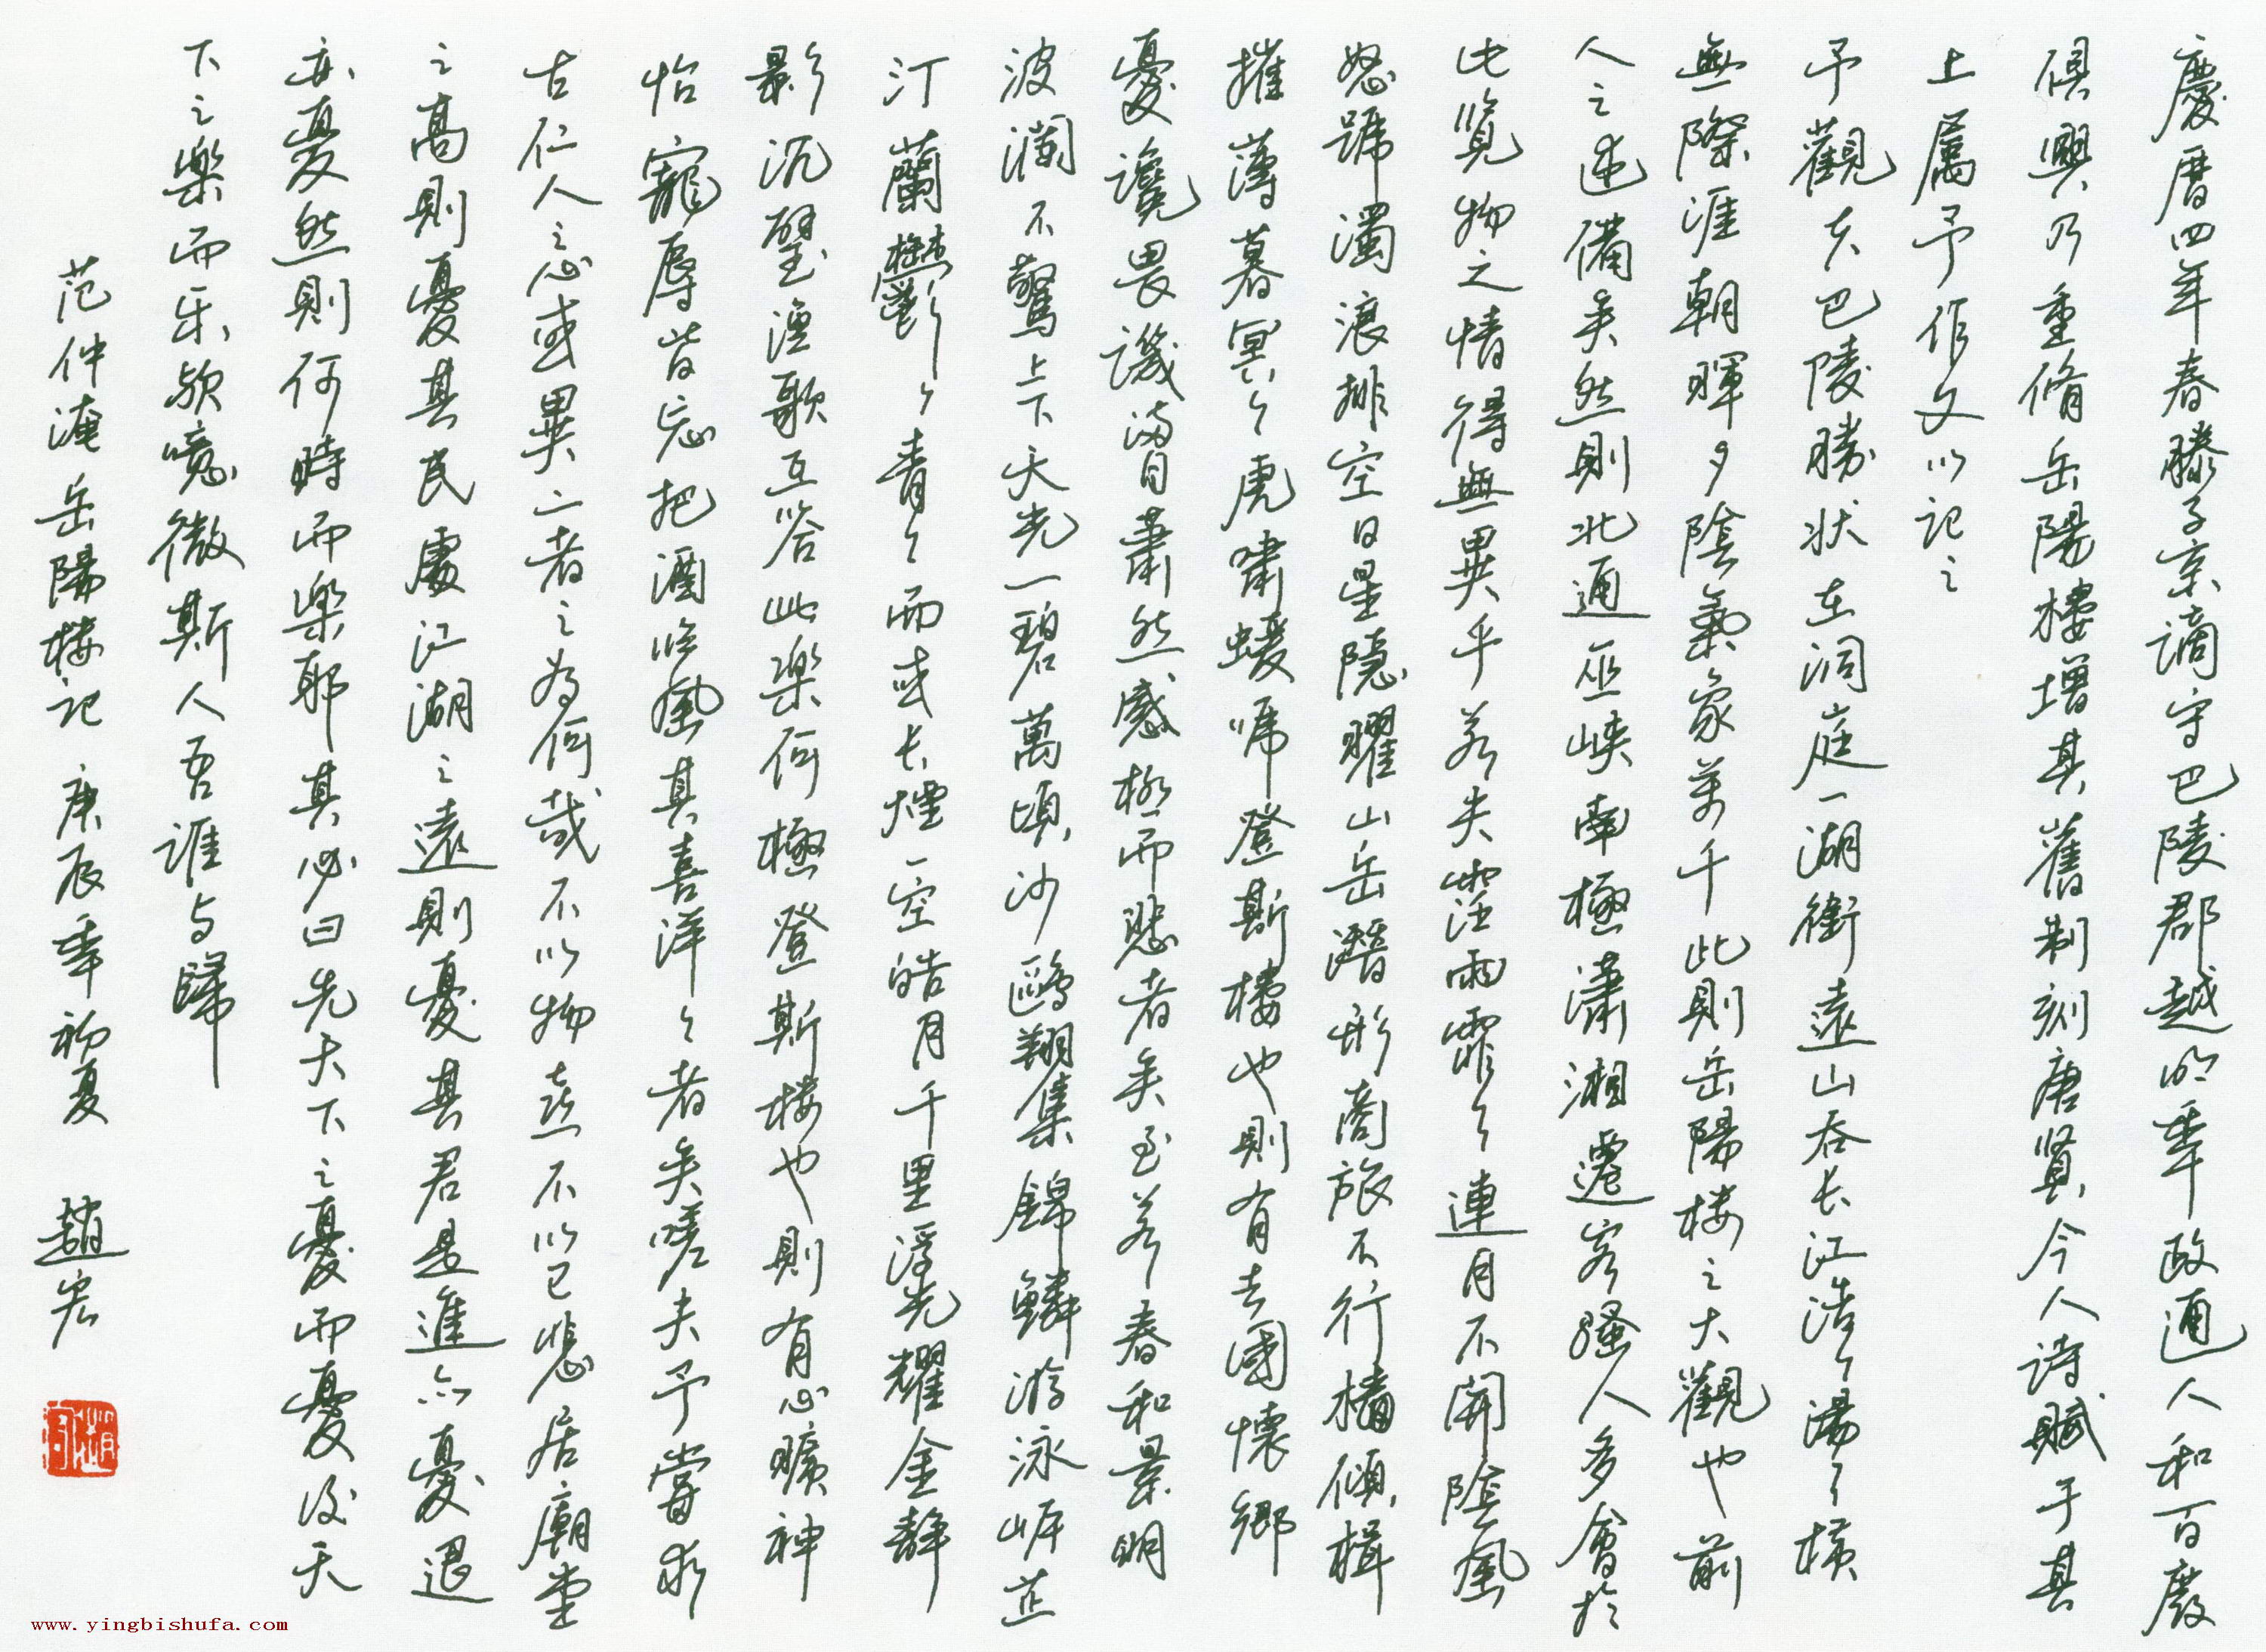 慶曆四年春滕子京謫守巴陵郡越明年政通人和百廢
俱興乃重脩岳陽樓增其舊制刻唐賢今人詩賦于其
上属予作文以記之
予觀夫巴陵勝状在洞庭一湖銜遠山吞长江浩々湯々横
無際涯朝暉夕陰氣象萬千此則岳陽楼之大觀也前
人之述備矣然則北通巫峡南極瀟湘遷客騷人多會於
此覧物之情得無異乎若夫霪雨霏々連月不開陰風
怒號濁浪排空日星隱曜山岳潛形商旅不行檣傾楫
摧薄暮冥々虎嘯蝯啼登斯樓也則有去國懷鄉
憂讒畏譏满目蕭然感極而悲者矣至若春和景明
波瀾不驚上下天光一碧萬頃沙鷗翔集錦鱗游泳岸芷
汀蘭欝々青々而或长煙一空皓月千里浮光耀金靜
影沉璧漁歌互答此樂何極登斯楼也則有心曠神
怡寵辱皆忘把酒临風其喜洋々者矣嗟夫予嘗求
古仁人之心或異二者之为何哉不以物喜不以己悲居廟堂
之高則憂其民處江湖之遠則憂其君是進亦憂退
亦憂然則何時而樂耶其必曰先天下之憂而憂后天
下之樂而乐欤噫微斯人吾谁与歸
范仲淹岳陽楼记 庚辰年初夏 趙宏
www.yingbishufa.com